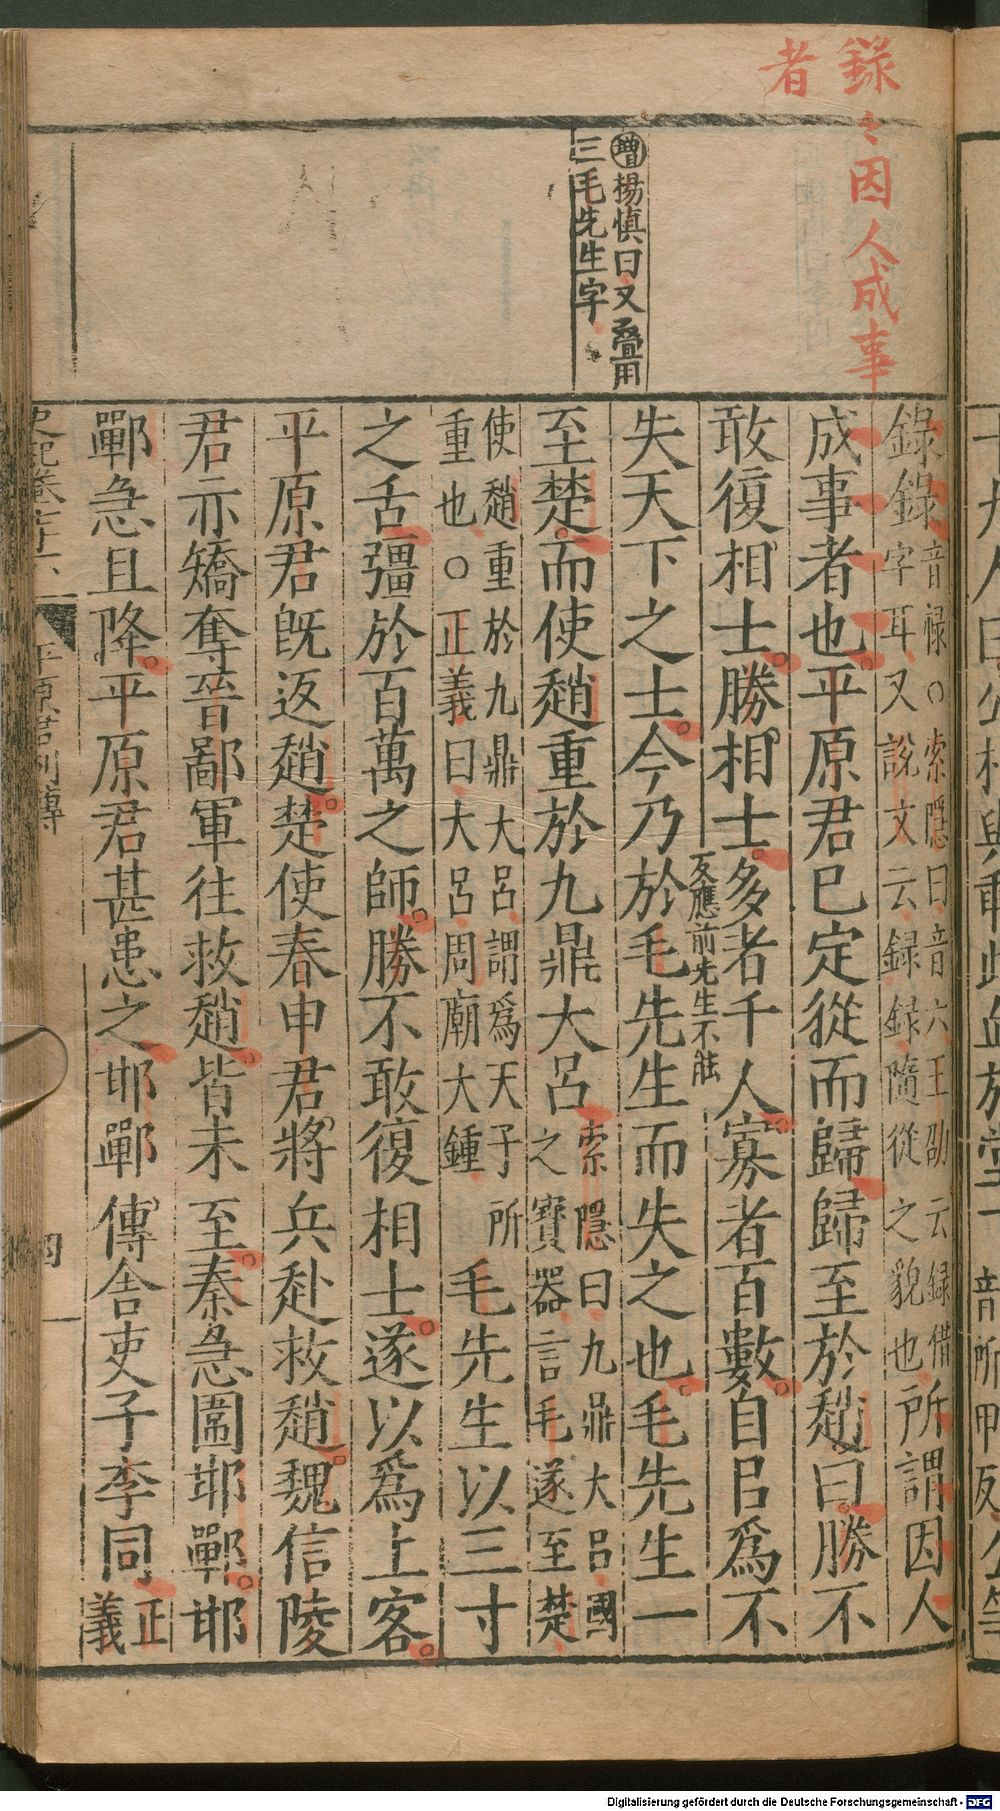 錄〻因人成事
者
增楊慎曰又疊用
三毛先生字
錄錄音祿○索隱曰音六王劭云録借
字耳又說文云録録隨從之貌也所謂因人
成事者也平原君已定從而歸歸至於趙曰勝不
敢復相士勝相士多者千人寡者百數自㠯爲不
反應前先生不能
失天下之士今乃於毛先生而失之也毛先生一
至楚而使趙重於九鼎大呂索隱曰九鼎大呂國
之寶器言毛遂至楚
使趙重於九鼎大呂謂爲天子所
重也○正義曰大呂周廟大鍾毛先生以三寸
之舌彊於百萬之師勝不敢復相士遂以爲上客
平原君既返趙楚使春申君將兵赴救趙魏信陵
君亦矯奪晉鄙軍往救趙皆未至秦急圍邯鄲邯
鄲急且降平原君甚患之邯鄲傳舍吏子李同正
義
平原君列傳
四
Digitalisierung gefördert durch die Deutsche Forschungsgemeinschaft - DFG